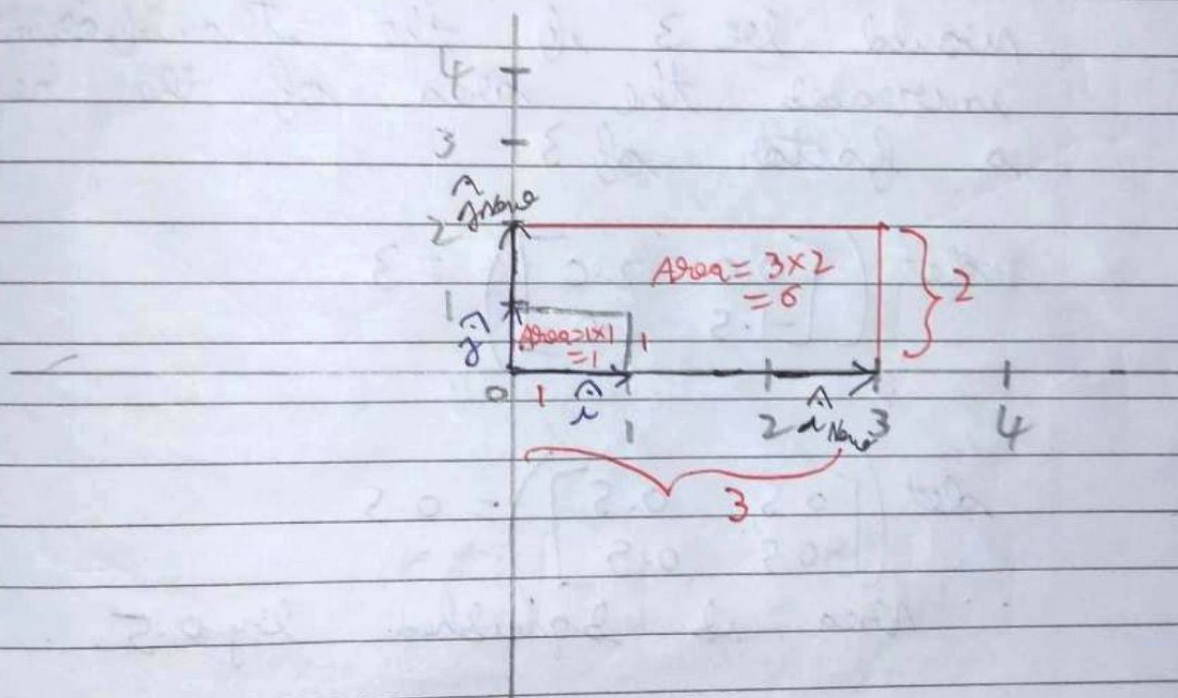 4
3
ĵ New
2
Area = 3×2
= 6
2
1
ĵ
Area = 1×1
= 1
1
0 1 î 1 2 î New 3 4
3